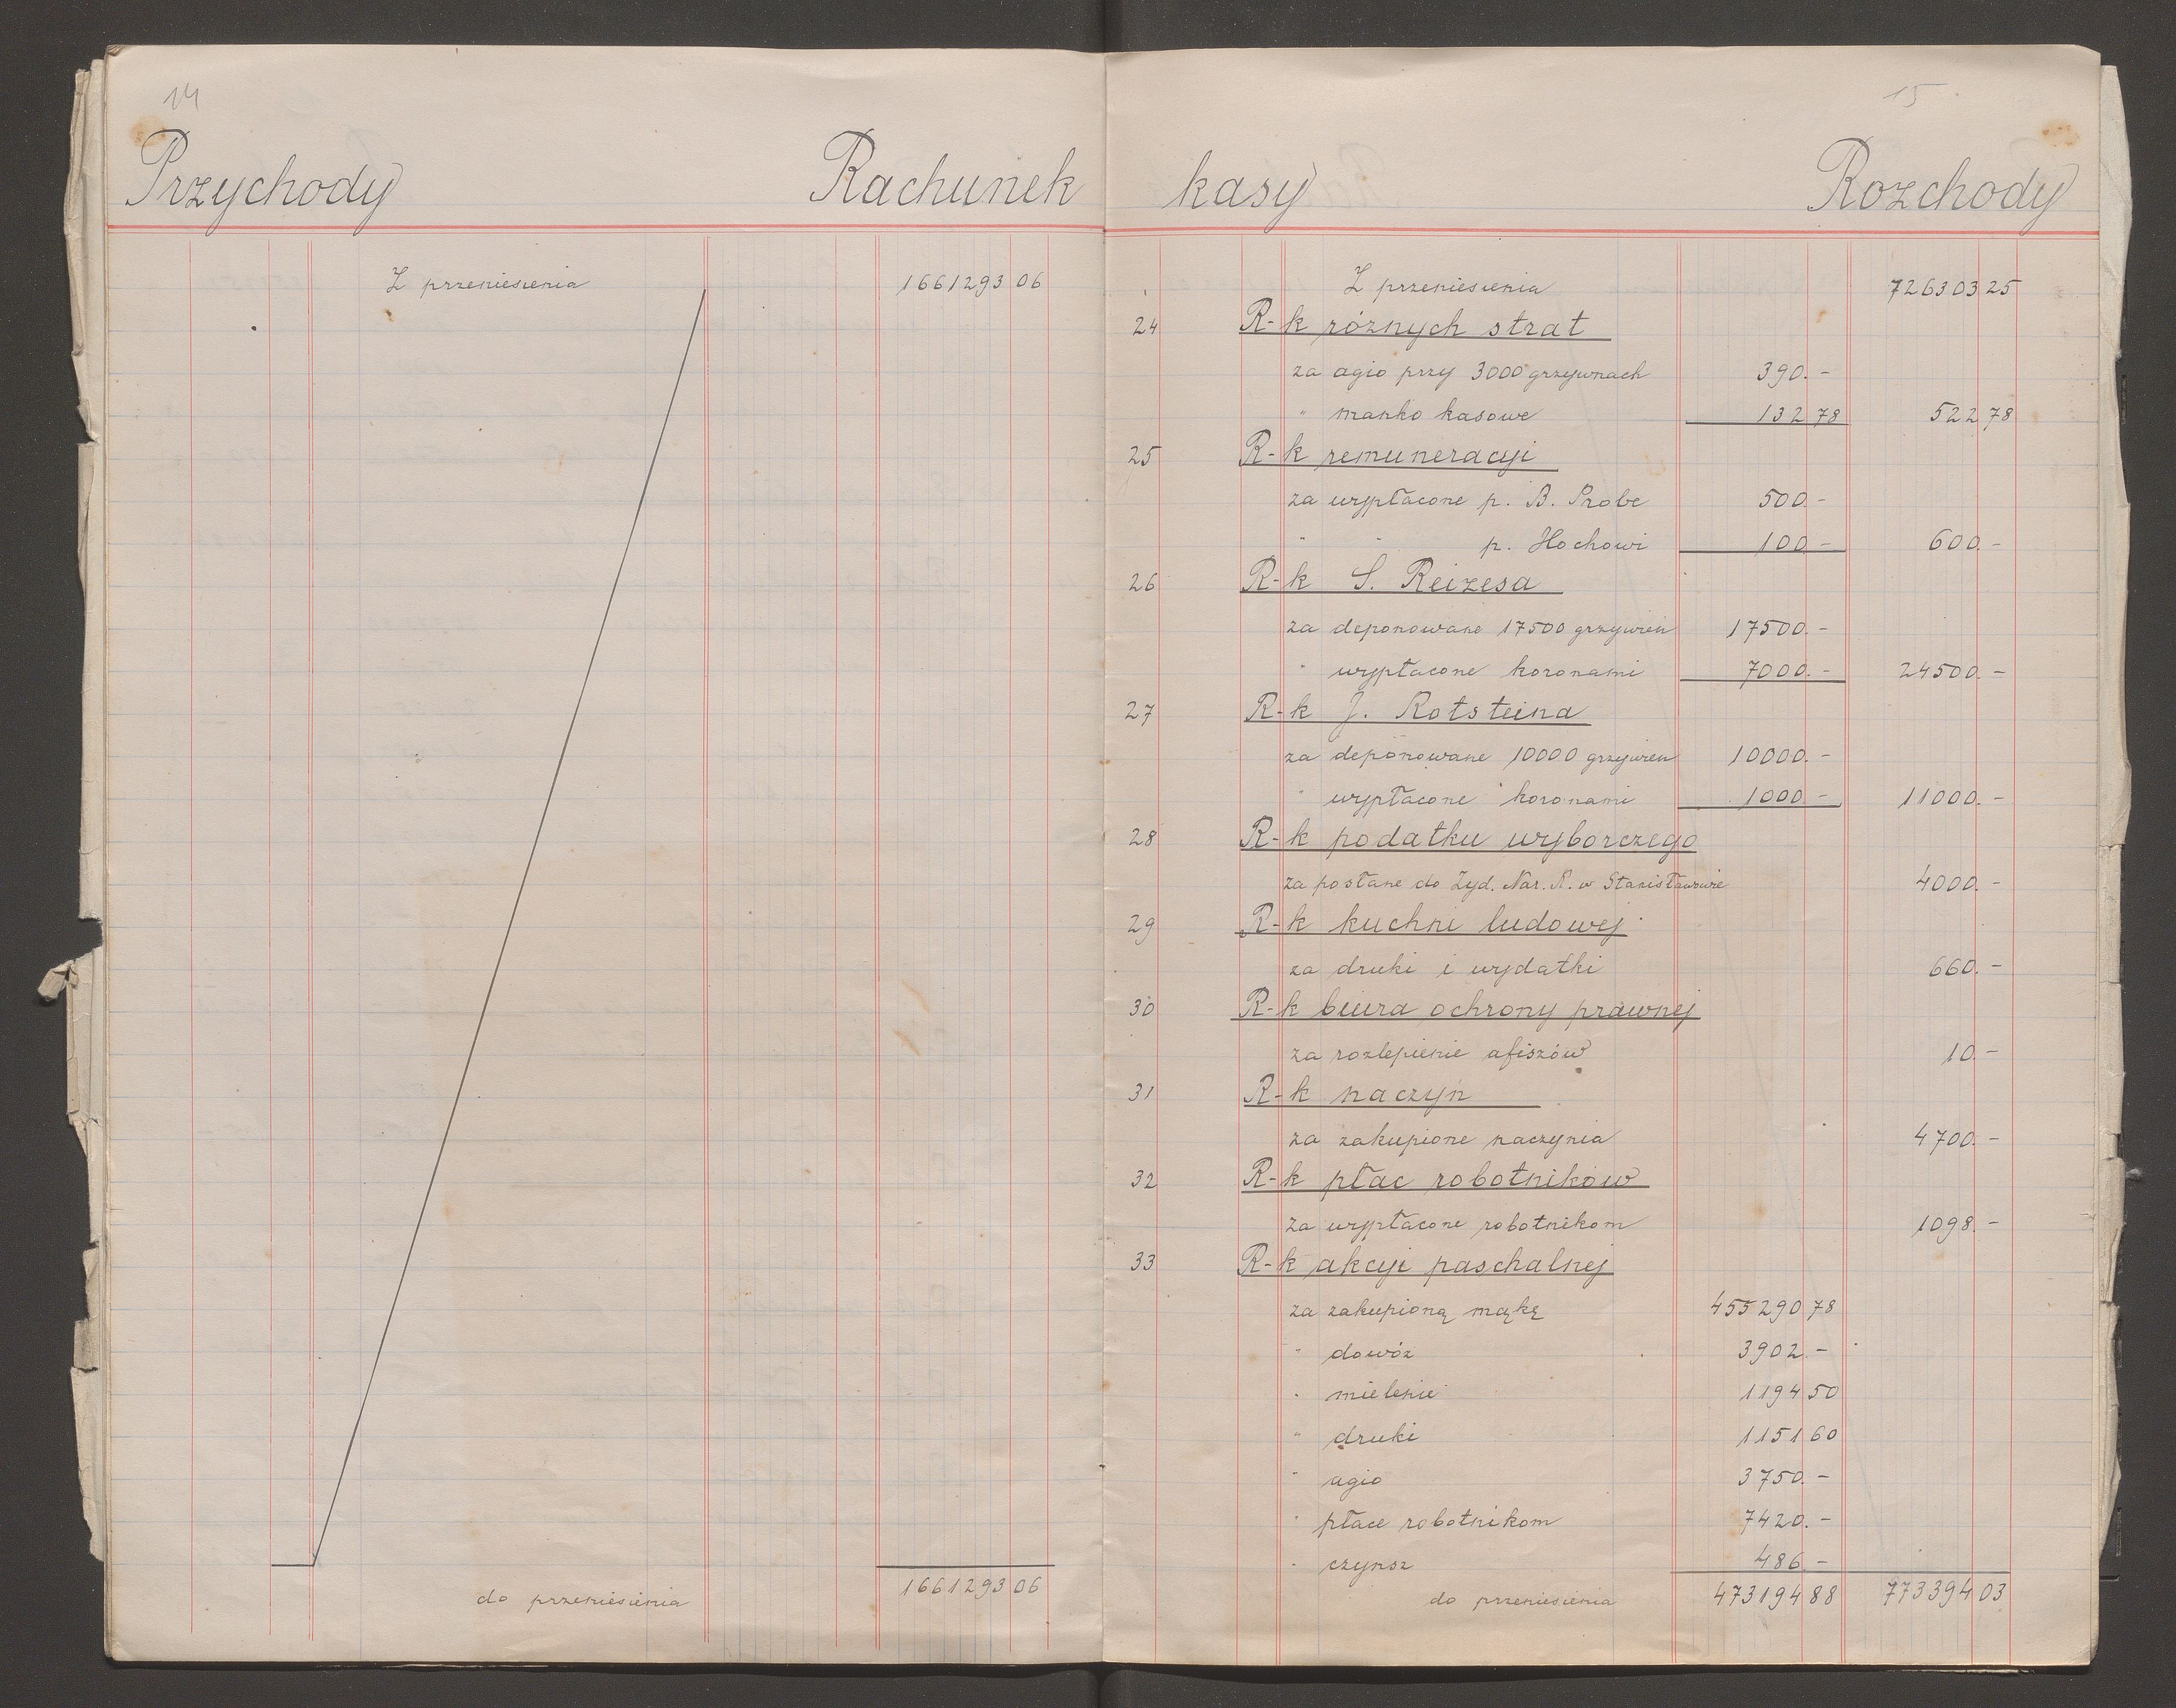 14
Przychody Rachunek
Z przeniesienia 1661293 06
do przeniesienia 1661293 06
15
kasy Rozchody
Z przeniesienia 726303 25
24 R-k róznych strat
za agio przy 3000 grzywnach 390.-
" manko kasowe 132 78 522 78
25 R-k remuneracyi
za wypłacone p. B. Probe 500.-
" " p. Hochowi 100.- 600.-
26 R-k S. Reizesa
za deponowane 17500 grzywien 17500.-
" wypłacone koronami 7000.- 24500.-
27 R-k J. Rotsteina
za deponowane 10000 grzywien 10000.-
" wypłacone koronami 1000.- 11000.-
28 R-k podatku wyborczego
za posłane do Żyd. Nar. R. w Stanisławowie 4000.-
29 R-k kuchni ludowej
za druki i wydatki 660.-
30 R-k biura ochrony prawnej
za rozlepienie afiszów 10.-
31 R-k naczyń
za zakupione naczynia 4700.-
32 R-k płac robotników
za wypłacone robotnikom 1098.-
33 R-k akcyi paschalnej
za zakupioną mąkę 455290 78
" dowóz 3902.-
" mielenie 1194 50
" druki 1151 60
" agio 3750.-
" płace robotnikom 7420.-
" czynsz 486.-
do przeniesienia 473194 88 773394 03